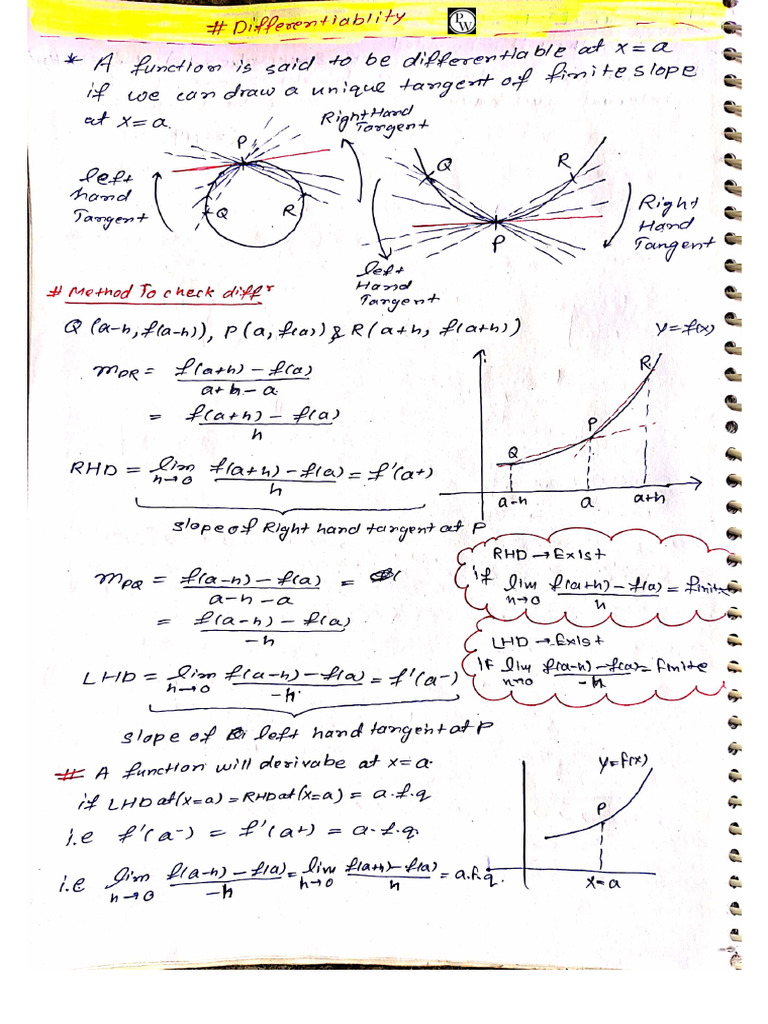 # Differentiablity
PW
* A function is said to be differentiable at x=a
if we can draw a unique tangent of finite slope
at x=a.
Right Hand
Tangent
P
left
hand
Tangent
Q
R
Q
R
P
left
Hand
Tangent
Right
Hand
Tangent
# Method To check diffr
Q (a-h, f(a-h)), P(a, f(a)) & R(a+h, f(a+h))
y=f(x)
mPR = f(a+h) - f(a) / a+h-a
= f(a+h) - f(a) / h
RHD = lim h→0 f(a+h)-f(a) / h = f'(a+)
slope of Right hand tangent at P
R
P
Q
a-h
a
a+h
RHD → Exist
if lim h→0 f(a+h)-f(a) / h = finite
mPQ = f(a-h) - f(a) / a-h-a =
= f(a-h) - f(a) / -h
LHD → Exist
if lim h→0 f(a-h)-f(a) / -h = finite
LHD = lim h→0 f(a-h)-f(a) / -h = f'(a-)
slope of left hand tangent at P
# A function will derivabe at x=a.
if LHD at(x=a) = RHD at(x=a) = a.f.q
i.e f'(a-) = f'(a+) = a.f.q.
i.e lim h→0 f(a-h) - f(a) / -h = lim h→0 f(a+h)-f(a) / h = a.f.q.
y=f(x)
P
x=a